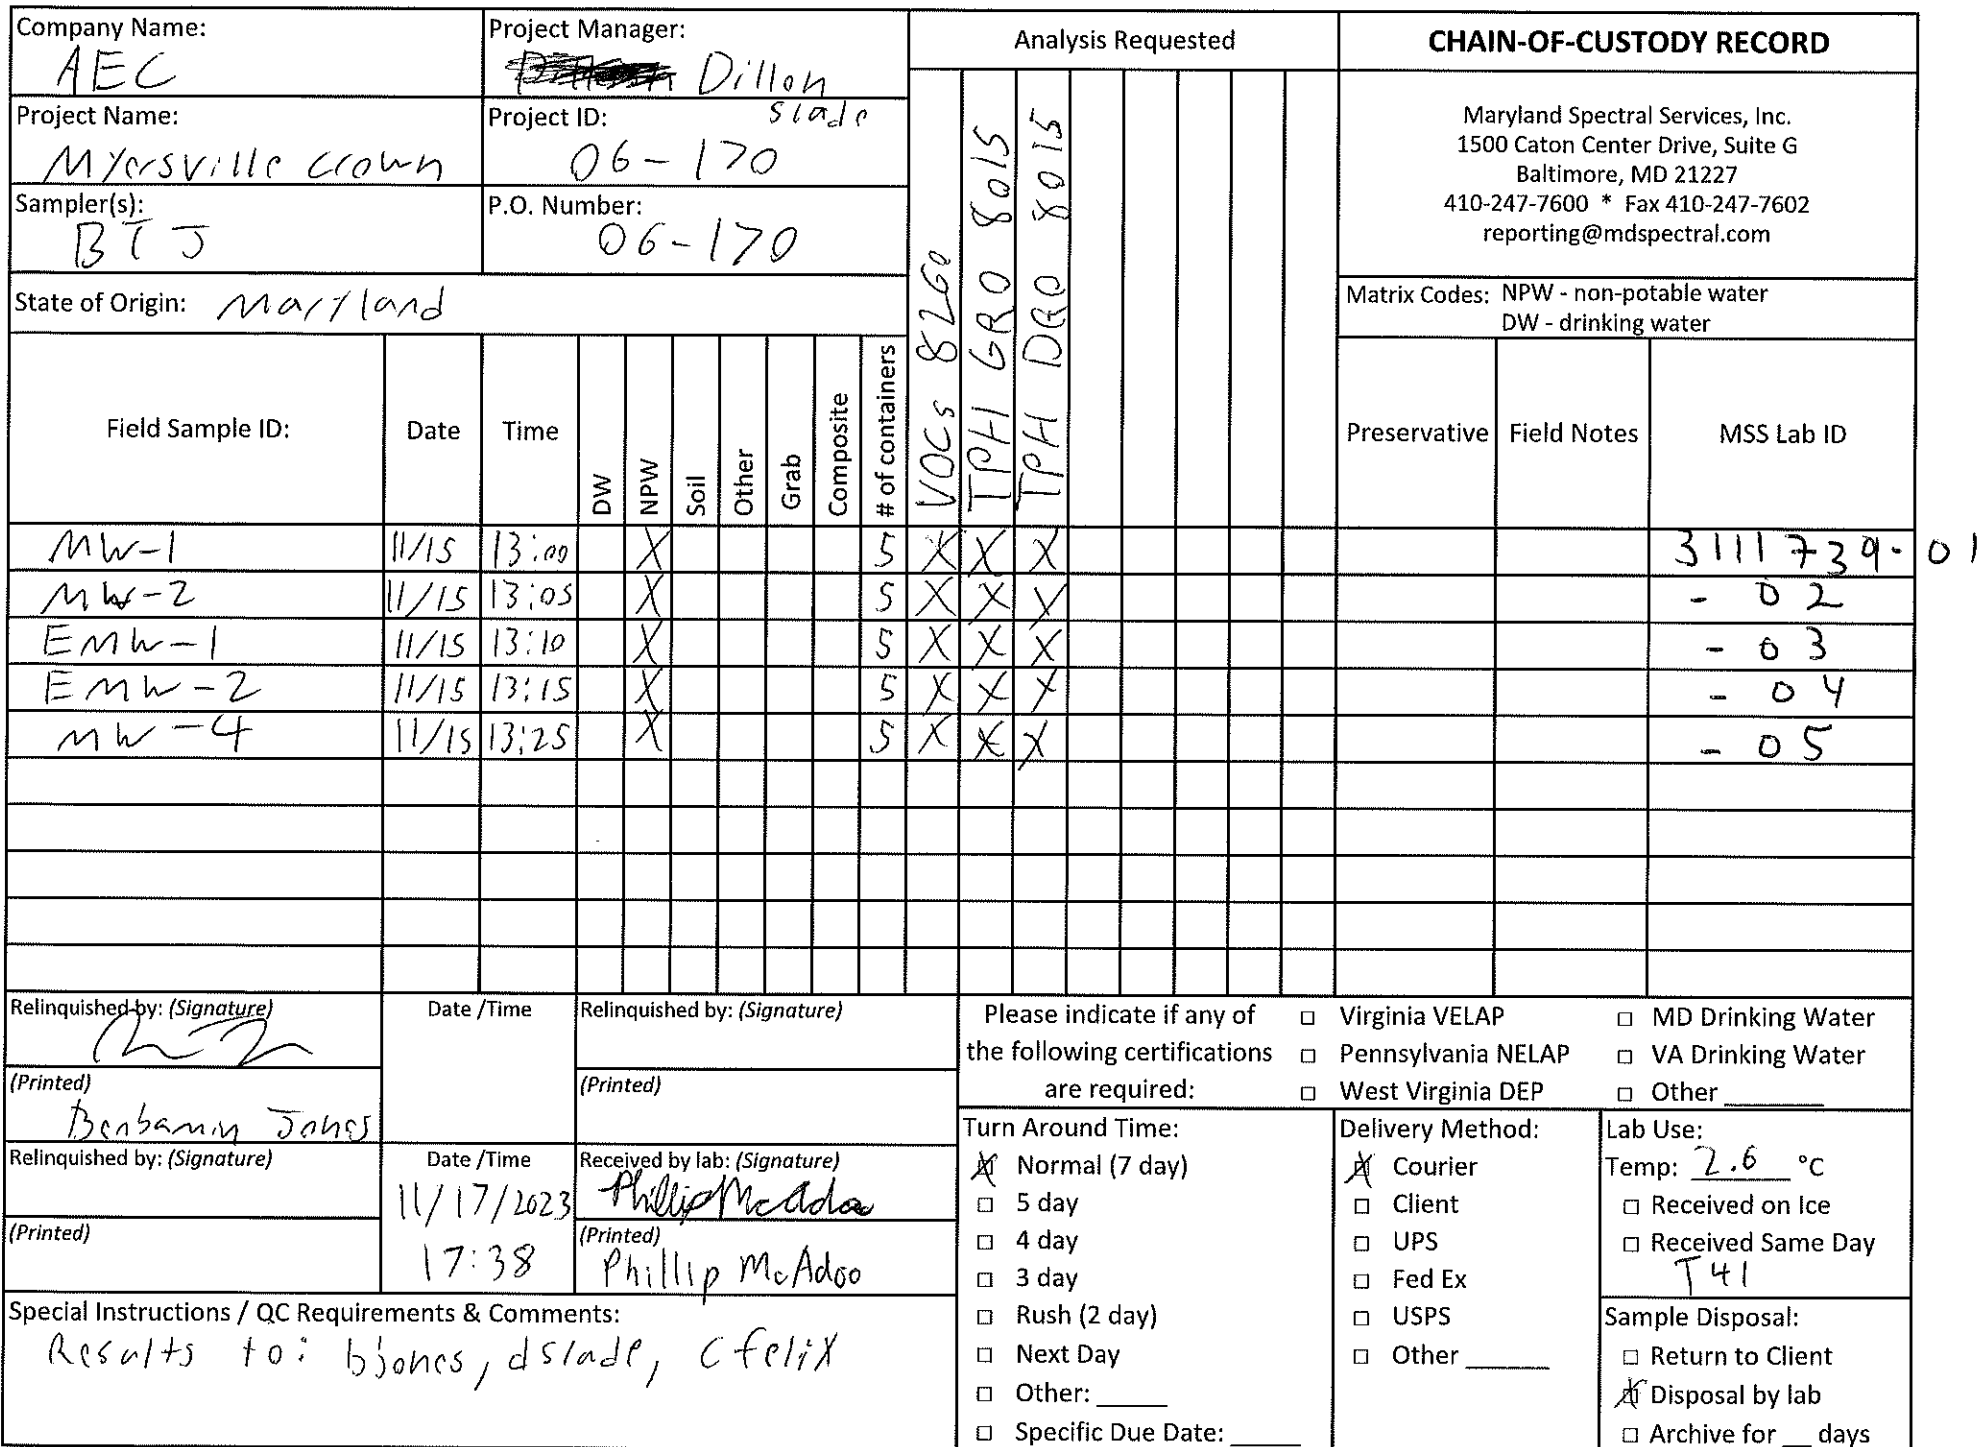 Company Name:
AEC
Project Manager:
Dillon
Slade
Project Name:
Myersville Crown
Project ID:
06-170
Sampler(s):
BTJ
P.O. Number:
06-170
State of Origin: Maryland
Analysis Requested
VOCs 8260
TPH GRO 8015
TPH DRO 8015
CHAIN-OF-CUSTODY RECORD
Maryland Spectral Services, Inc.
1500 Caton Center Drive, Suite G
Baltimore, MD 21227
410-247-7600 * Fax 410-247-7602
reporting@mdspectral.com
Matrix Codes: NPW - non-potable water
DW - drinking water
Field Sample ID: Date Time DW NPW Soil Other Grab Composite # of containers Preservative Field Notes MSS Lab ID
MW-1 11/15 13:00 X 5 X X X 3111739-01
MW-2 11/15 13:05 X 5 X X X - 02
EMW-1 11/15 13:10 X 5 X X X - 03
EMW-2 11/15 13:15 X 5 X X X - 04
MW-4 11/15 13:25 X 5 X X X - 05
Relinquished by: (Signature)
(Printed)
Benbamin Jones
Date /Time
Relinquished by: (Signature)
(Printed)
Relinquished by: (Signature)
(Printed)
Date /Time
11/17/2023
17:38
Received by lab: (Signature)
Phillip McAdoo
(Printed)
Phillip McAdoo
Special Instructions / QC Requirements & Comments:
Results to: bjones, dslade, cfelix
Please indicate if any of
the following certifications
are required:
□ Virginia VELAP
□ Pennsylvania NELAP
□ West Virginia DEP
□ MD Drinking Water
□ VA Drinking Water
□ Other ______
Turn Around Time:
X Normal (7 day)
□ 5 day
□ 4 day
□ 3 day
□ Rush (2 day)
□ Next Day
□ Other: ______
□ Specific Due Date: ______
Delivery Method:
X Courier
□ Client
□ UPS
□ Fed Ex
□ USPS
□ Other ______
Lab Use:
Temp: 2.6 °C
□ Received on Ice
□ Received Same Day
T41
Sample Disposal:
□ Return to Client
X Disposal by lab
□ Archive for __ days